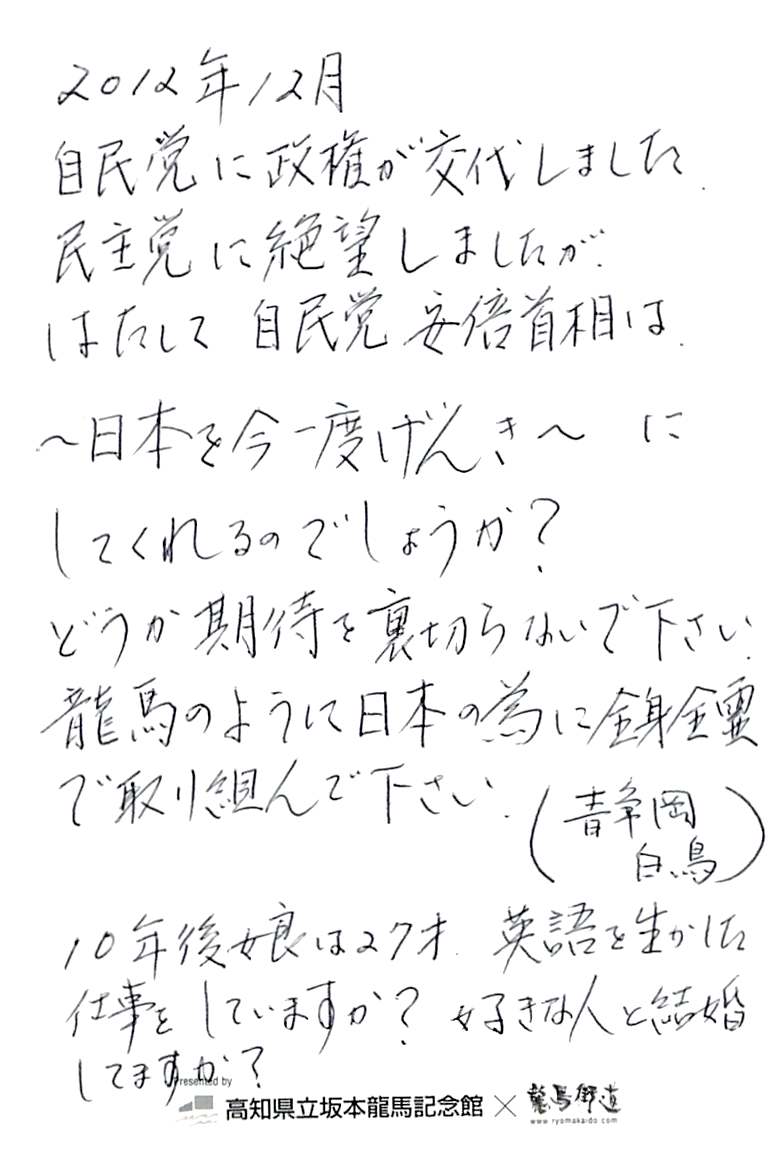 2012年12月
自民党に政権が交代しました.
民主党に絶望しましたが.
はたして 自民党 安倍首相は.
～日本を今一度げんき～ に
してくれるのでしょうか?
どうか期待を裏切らないで下さい.
龍馬のように日本の為に全身全霊
で取り組んで下さい.
(静岡
白鳥)
10年後娘は27才. 英語を生かした
仕事をしていますか? 好きな人と結婚
してますか?
Presented by
高知県立坂本龍馬記念館 × 龍馬街道
www.ryomakaido.com